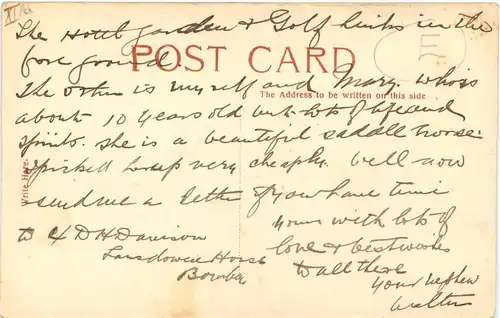 The Hotel garden & Golf links in the
fore ground
POST CARD
The other is myself and Mary. who is
The Address to be written on this side
about 10 years old but lots of life and
spirits. she is a beautiful saddle horse.
I picked her up very cheaply. well now
Write Here.
send me a letter if you have time
yours with lots of
to D H Davison
love & best wishes
Lansdowne House
to all there
Bombay
your nephew
Walter
E